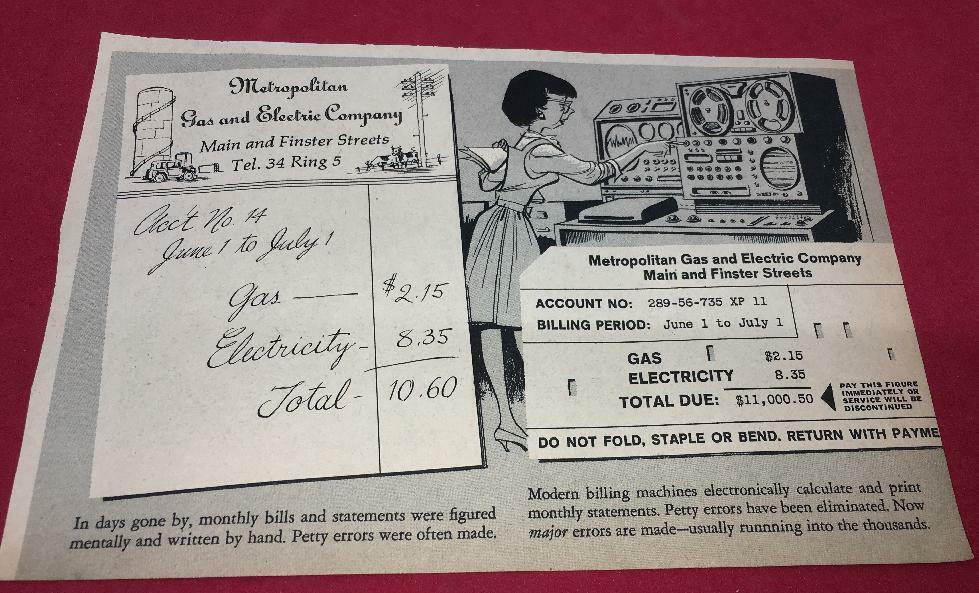 Metropolitan
Gas and Electric Company
Main and Finster Streets
Tel. 34 Ring 5
Acc't No. 14
June 1 to July 1
Gas — $2.15
Electricity - 8.35
Total - 10.60
In days gone by, monthly bills and statements were figured
mentally and written by hand. Petty errors were often made.
Metropolitan Gas and Electric Company
Main and Finster Streets
ACCOUNT NO: 289-56-735 XP 11
BILLING PERIOD: June 1 to July 1
GAS $2.15
ELECTRICITY 8.35
TOTAL DUE: $11,000.50
PAY THIS FIGURE
IMMEDIATELY OR
SERVICE WILL BE
DISCONTINUED
DO NOT FOLD, STAPLE OR BEND. RETURN WITH PAYME
Modern billing machines electronically calculate and print
monthly statements. Petty errors have been eliminated. Now
major errors are made—usually runnning into the thousands.